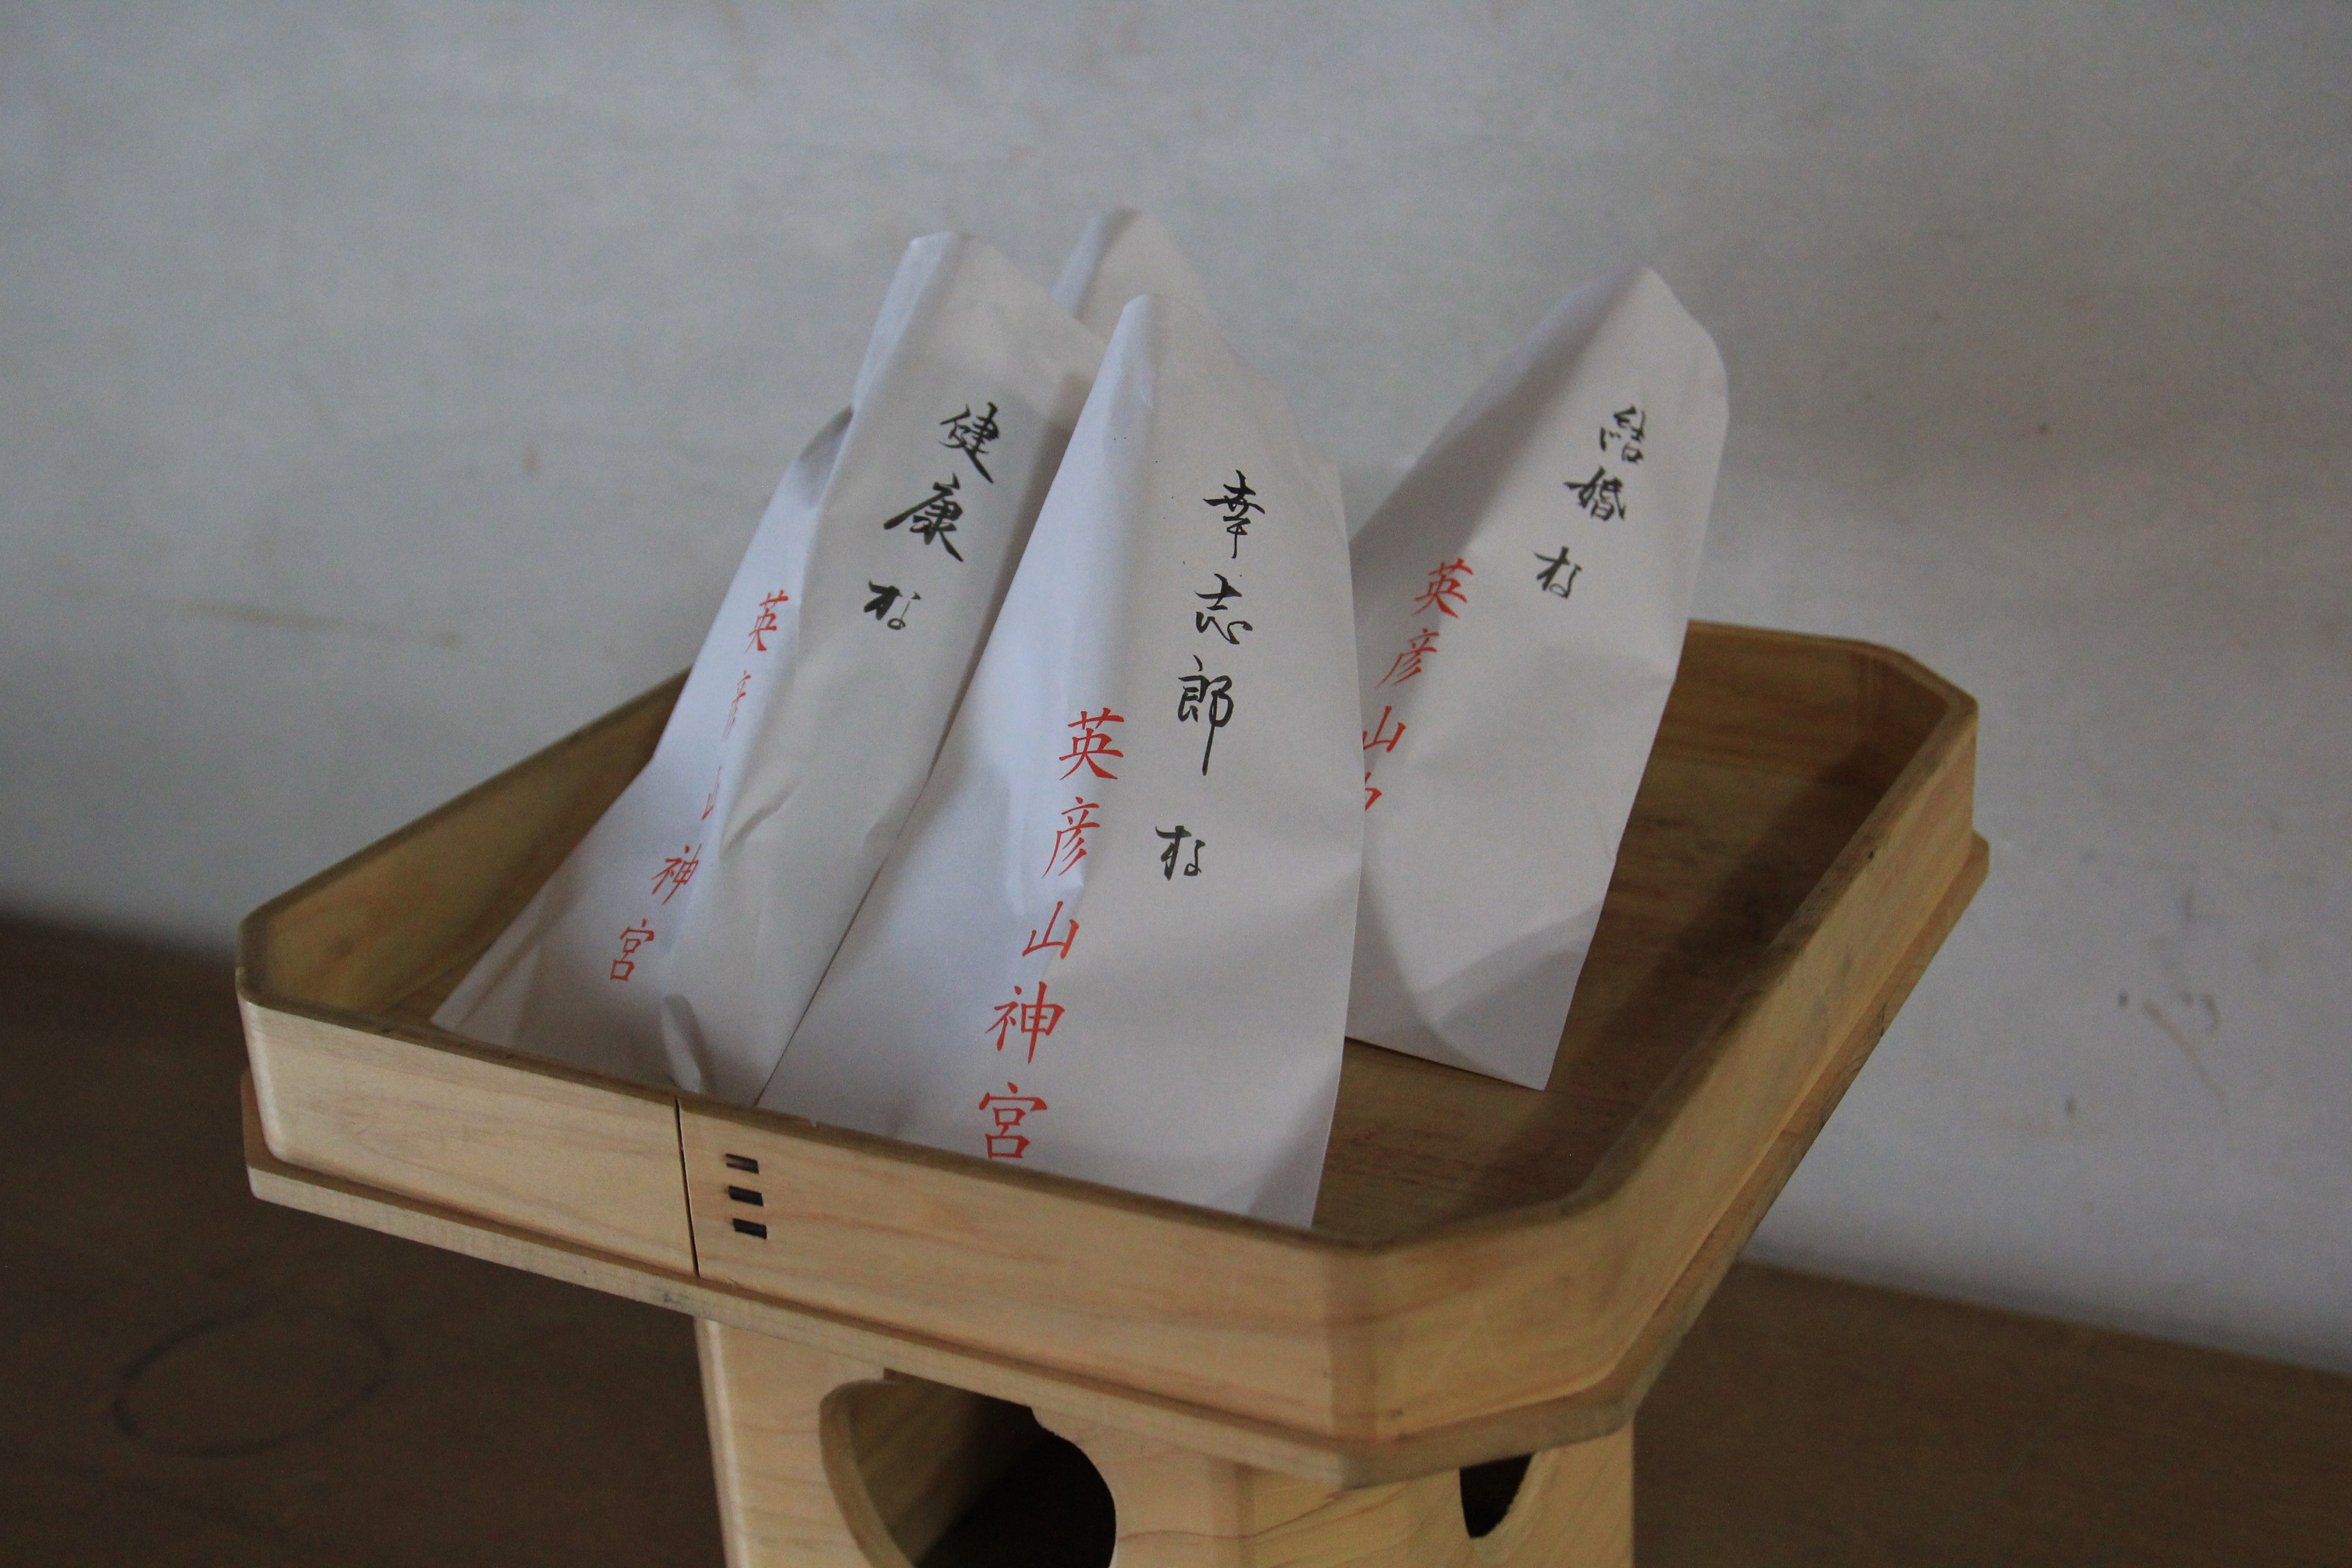 健康な
英彦山神宮
幸志郎な
英彦山神宮
結婚な
英彦山